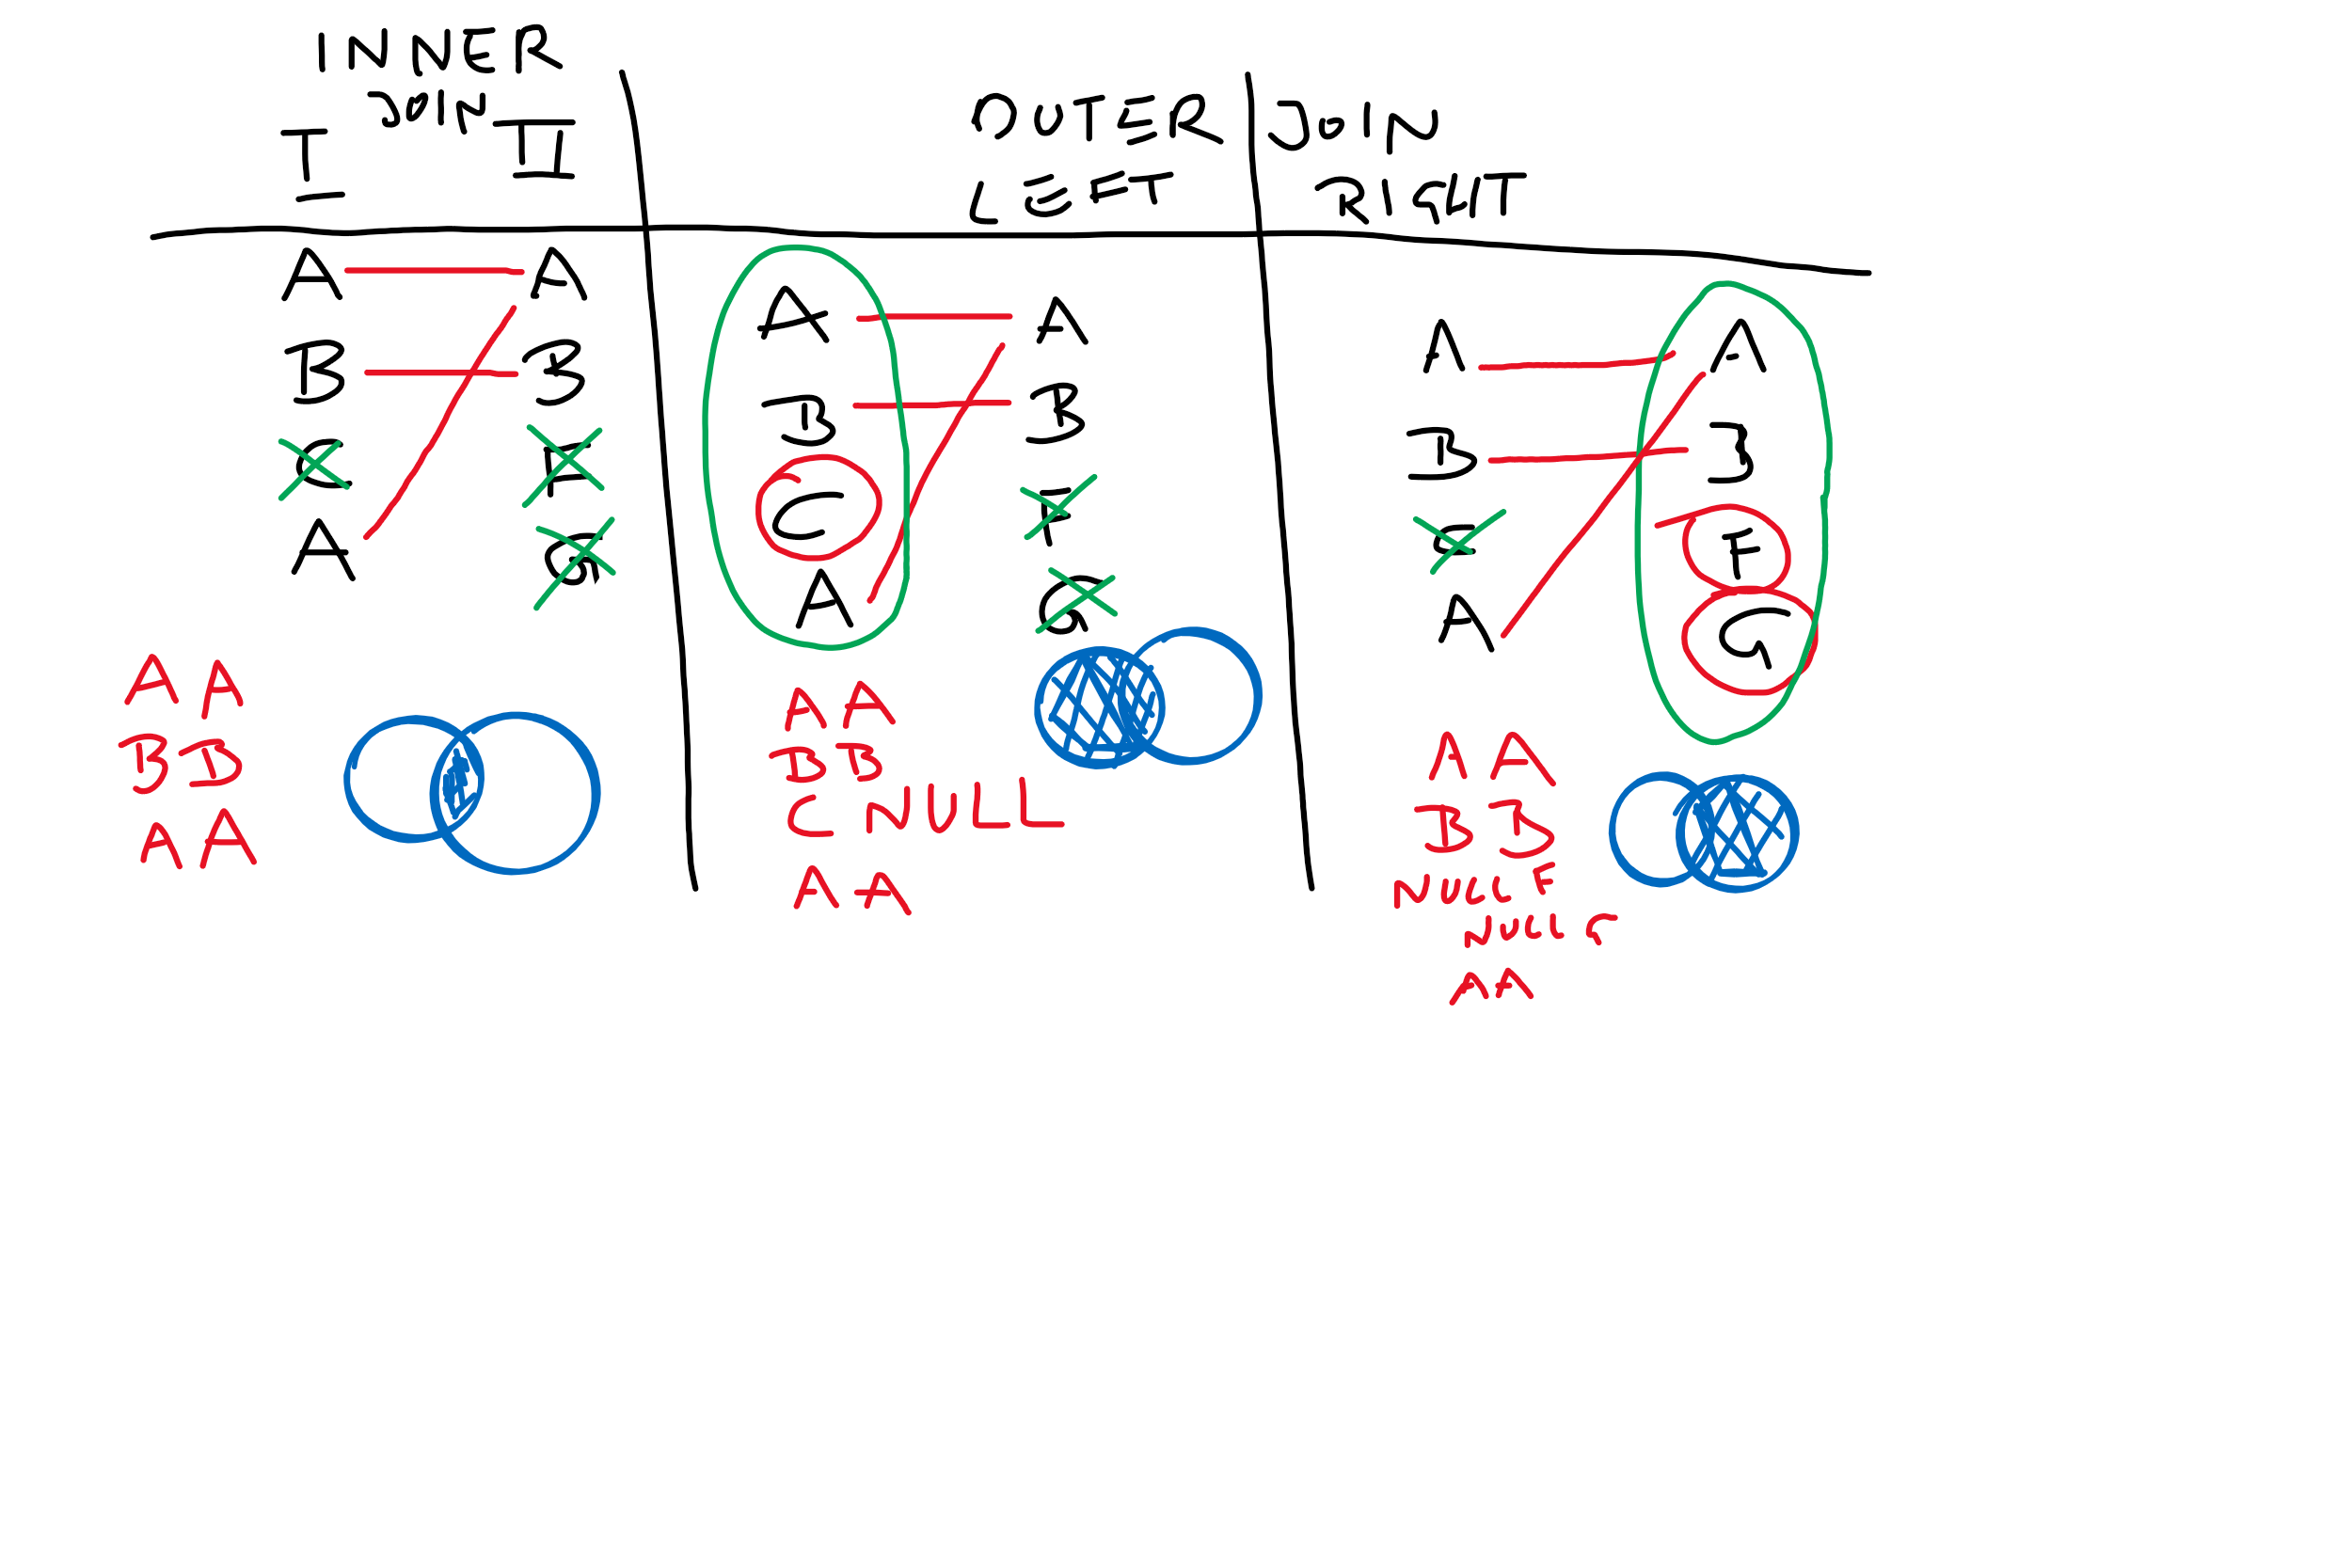 INNER
JOIN
I II
A A
B B
C F
A G
A A
B B
A A
OUTER JOIN
LEFT RIGHT
A A
B B
C F
A G
A A
B B
C NULL
A A
A A
B B
C F
A G
A A
B B
NULL F
NULL G
A A